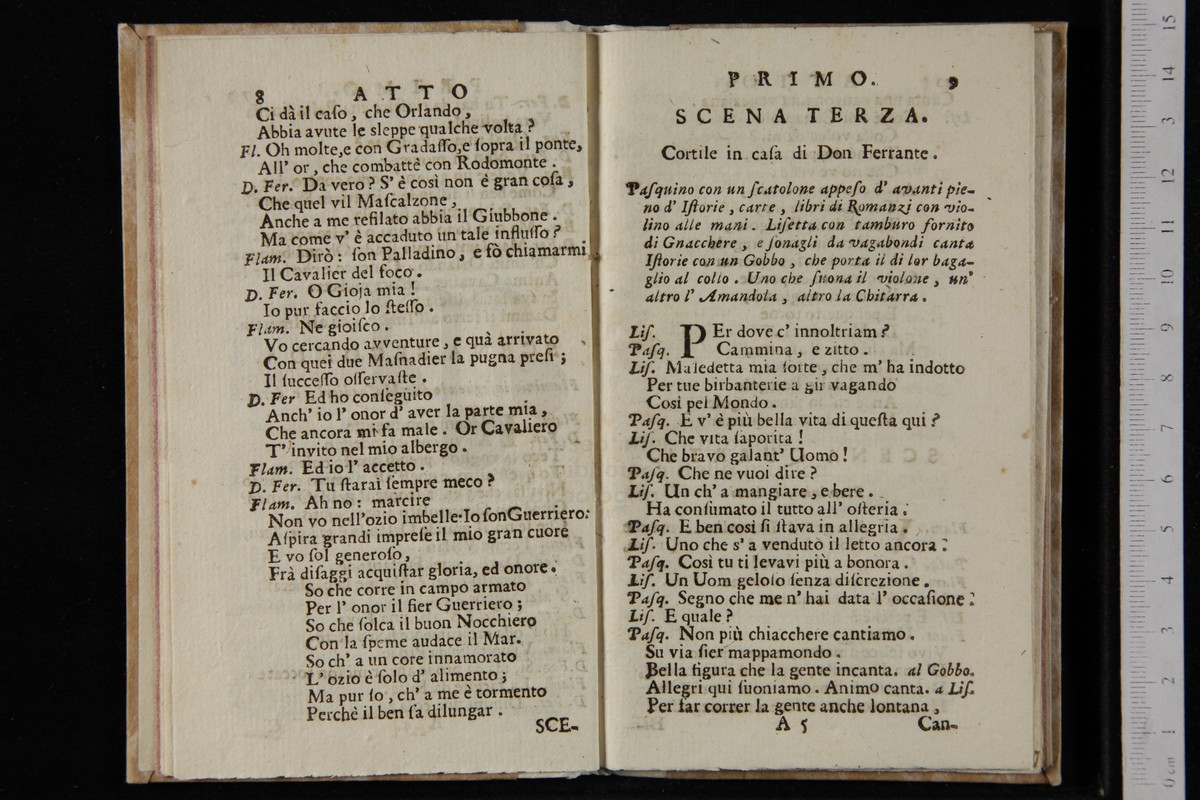 8 ATTO
Ci dà il caſo, che Orlando,
Abbia avute le sleppe qualche volta?
Fl. Oh molte,e con Gradaſſo,e ſopra il ponte,
All' or, che combattè con Rodomonte.
D. Fer. Da vero? S' è così non è gran coſa,
Che quel vil Maſcalzone,
Anche a me refilato abbia il Giubbone.
Ma come v' è accaduto un tale influſſo?
Flam. Dirò: ſon Palladino, e fò chiamarmi
Il Cavalier del foco.
D. Fer. O Gioja mia!
Io pur faccio lo ſteſſo.
Flam. Ne gioiſco.
Vo cercando avventure, e quà arrivato
Con quei due Maſnadier la pugna preſi;
Il ſucceſſo oſſervaſte.
D. Fer Ed ho conſeguito
Anch' io l' onor d' aver la parte mia,
Che ancora mi fa male. Or Cavaliero
T' invito nel mio albergo.
Flam. Ed io l' accetto.
D. Fer. Tu ſtarai ſempre meco?
Flam. Ah no: marcire
Non vo nell'ozio imbelle·Io ſonGuerriero:
Aſpira grandi impreſe il mio gran cuore
E vo ſol generoſo,
Frà diſaggi acquiſtar gloria, ed onore.
So che corre in campo armato
Per l' onor il fier Guerriero;
So che ſolca il buon Nocchiero
Con la ſpeme audace il Mar.
So ch' a un core innamorato
L' ozio è ſolo d' alimento;
Ma pur ſo, ch' a me è tormento
Perchè il ben fa dilungar.
SCE-
PRIMO. 9
SCENA TERZA.
Cortile in caſa di Don Ferrante.
Paſquino con un ſcatolone appeſo d' avanti pie-
no d' Iſtorie, carte, libri di Romanzj con vio-
lino alle mani. Liſetta con tamburo fornito
di Gnacchere, e ſonagli da vagabondi canta
Iſtorie con un Gobbo, che porta il di lor baga-
glio al collo. Uno che ſuona il violone, un'
altro l' Amandola, altro la Chitarra.
Liſ. PEr dove c' innoltriam?
Paſq. Cammina, e zitto.
Liſ. Maledetta mia ſorte, che m' ha indotto
Per tue birbanterie a gir vagando
Così pel Mondo.
Paſq. E v' è più bella vita di queſta qui?
Liſ. Che vita ſaporita!
Che bravo galant' Uomo!
Paſq. Che ne vuoi dire?
Liſ. Un ch' a mangiare, e bere.
Ha conſumato il tutto all' oſteria.
Paſq. E ben così ſi ſtava in allegria.
Liſ. Uno che s' a venduto il letto ancora:
Paſq. Così tu ti levavi più a bonora.
Liſ. Un Uom geloſo ſenza diſcrezione.
Paſq. Segno che me n' hai data l' occaſione:
Liſ. E quale?
Paſq. Non più chiacchere cantiamo.
Su via fier mappamondo.
Bella figura che la gente incanta. al Gobbo.
Allegri qui ſuoniamo. Animo canta. a Liſ.
Per far correr la gente anche lontana,
A 5 Can-